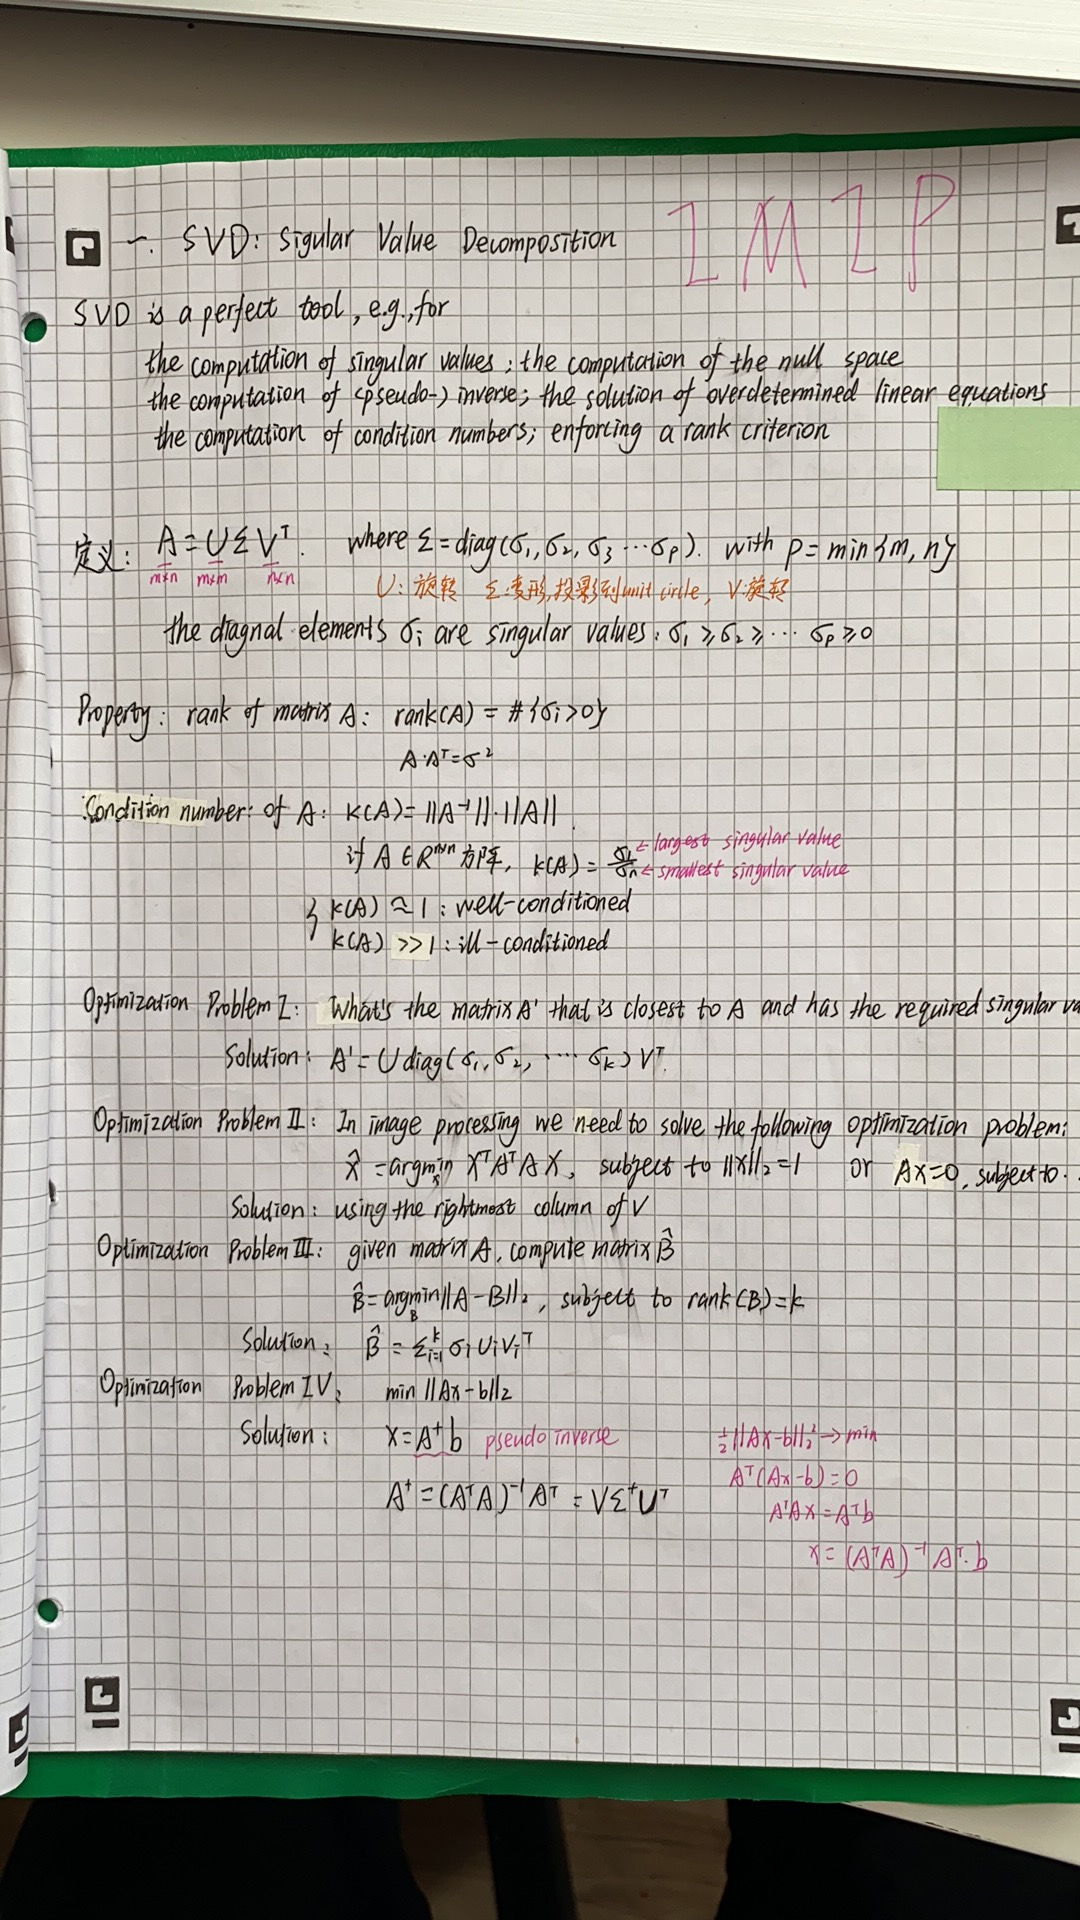 IMIP
一. SVD: Sigular Value Decomposition
SVD is a perfect tool, e.g., for
the computation of singular values; the computation of the null space
the computation of (pseudo-) inverse; the solution of overdetermined linear equations
the computation of condition numbers; enforcing a rank criterion
定义: A = U Σ Vᵀ. where Σ = diag(σ₁, σ₂, σ₃ ··· σp). with p = min{m, n}
m×n m×m n×n
U: 旋转 Σ: 变形, 投影到unit circle, V: 旋转
the diagnal elements σi are singular values: σ₁ ≥ σ₂ ≥ ··· σp ≥ 0
Property: rank of matrix A: rank(A) = #{σi>0}
A·Aᵀ = σ²
Condition number: of A: k(A) = ||A⁻¹||·||A||
if A ∈ Rⁿˣⁿ 方阵, k(A) = σ₁/σn ← largest singular value
← smallest singular value
{ k(A) ≈ 1: well-conditioned
k(A) >> 1: ill-conditioned
Optimization Problem I: What's the matrix A' that is closest to A and has the required singular va
Solution: A' = U diag(σ₁, σ₂, ··· σk) Vᵀ.
Optimization Problem II: In image processing we need to solve the following optimization problem:
x̂ = argmin x XᵀAᵀAX, subject to ||x||₂ = 1 or Ax=0, subject to ·
Solution: using the rightmost column of V
Optimization Problem III: given matrix A, compute matrix B̂
B̂ = argmin B ||A-B||₂, subject to rank(B)=k
Solution: B̂ = Σᵏᵢ₌₁ σi Ui Viᵀ
Optimization Problem IV: min ||Ax-b||₂
Solution: x = A⁺b pseudo inverse
A⁺ = (AᵀA)⁻¹Aᵀ = VΣ⁺Uᵀ
½||Ax-b||₂² → min
Aᵀ(Ax-b) = 0
AᵀAx = Aᵀb
x = (AᵀA)⁻¹Aᵀ·b